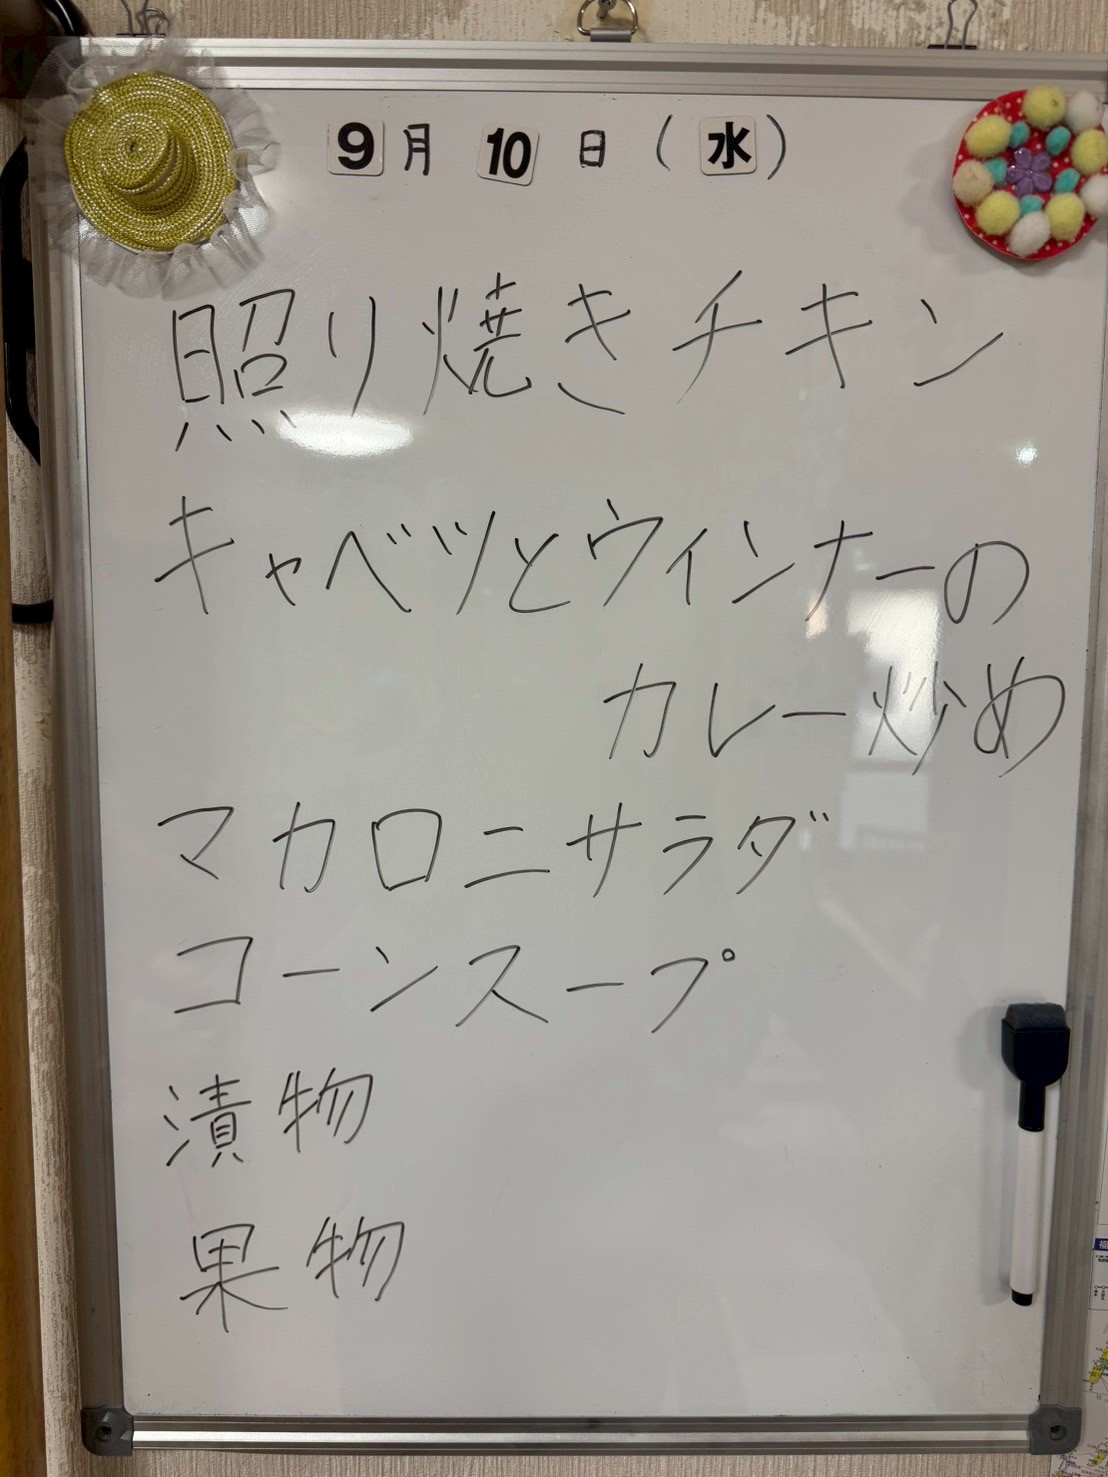 9月 10日(水)
照り焼きチキン
キャベツとウィンナーの
カレー炒め
マカロニサラダ
コーンスープ
漬物
果物